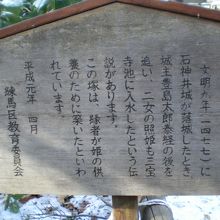 文明九年(一四七七)に
石神井城が落城したとき、
城主豊島太郎泰経の後を
追い、二女の照姫も三宝
寺池に入水したという伝
説があります。
この塚は、縁者が姫の供
養のために築いたといわ
れています。
平成元年 四月
練馬区教育委員会